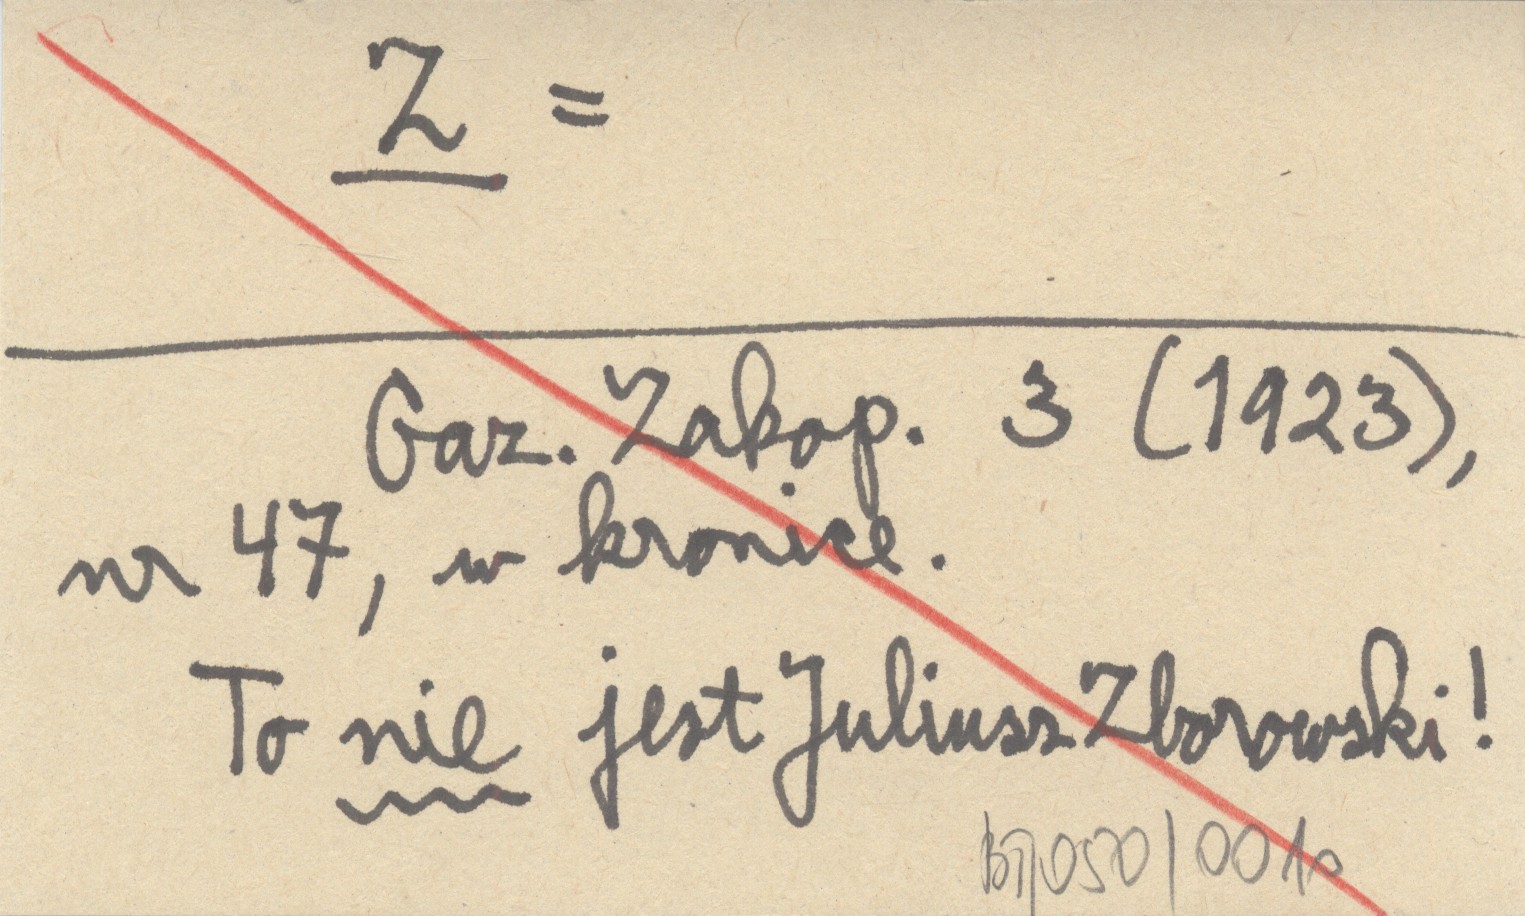 Z =
Gaz. Zakop. 3 (1923),
nr 47, w kronice.
To nie jest Juliusz Zborowski!